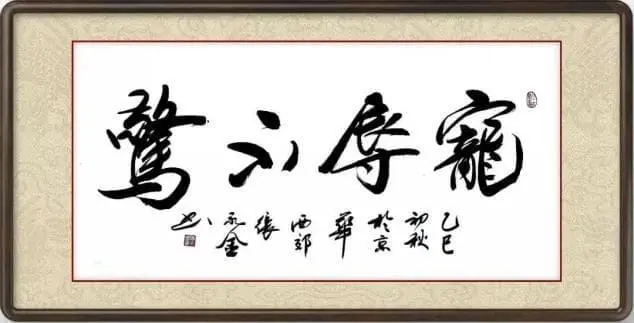 寵辱不驚
乙巳初秋於京華西郊張永金书